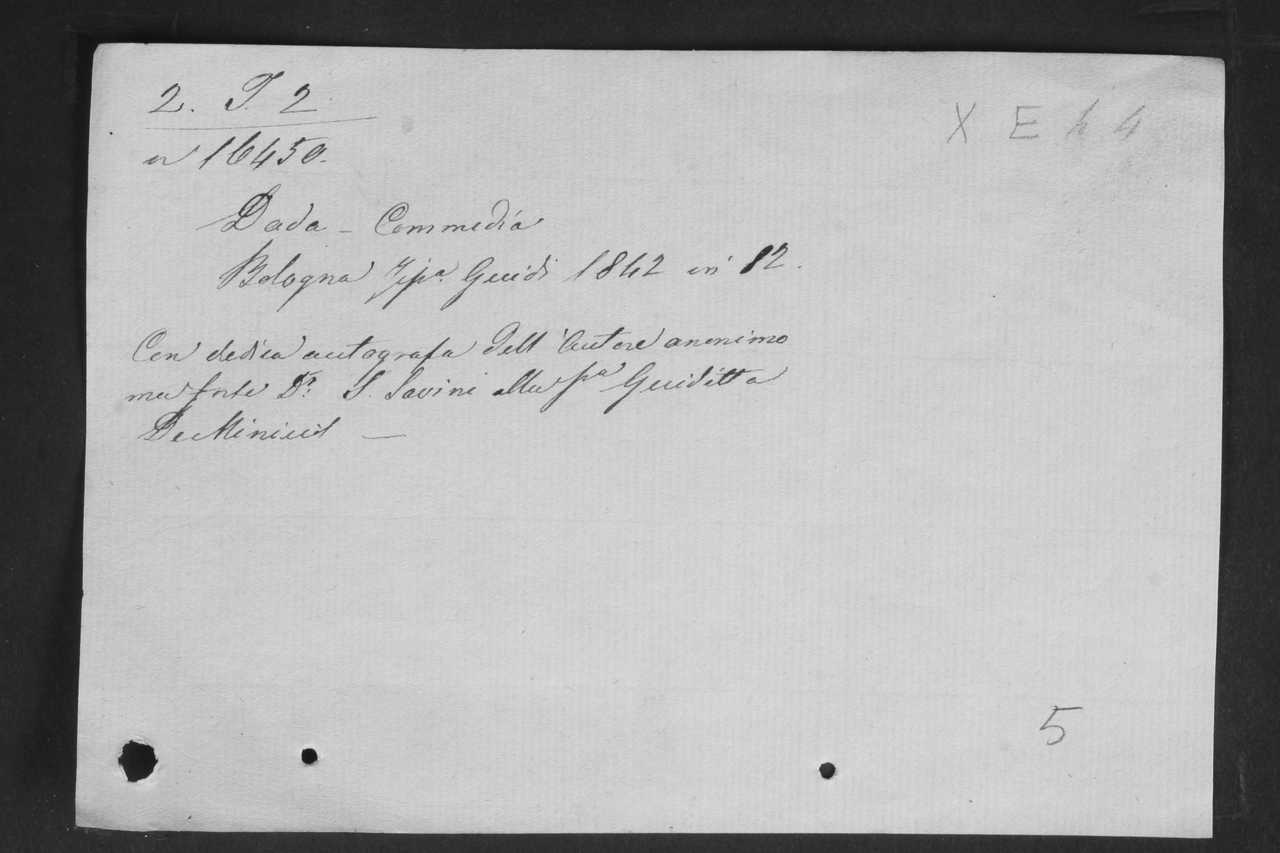 2. T. 2
X E h 4
n 16450.
Dada - Commedia
Bologna Tipa. Guidi 1842 in 12.
Con dedica autografa dell'Autore anonimo
ma Dr. S. Savini alla Sra Guiditta
De Minicis —
5